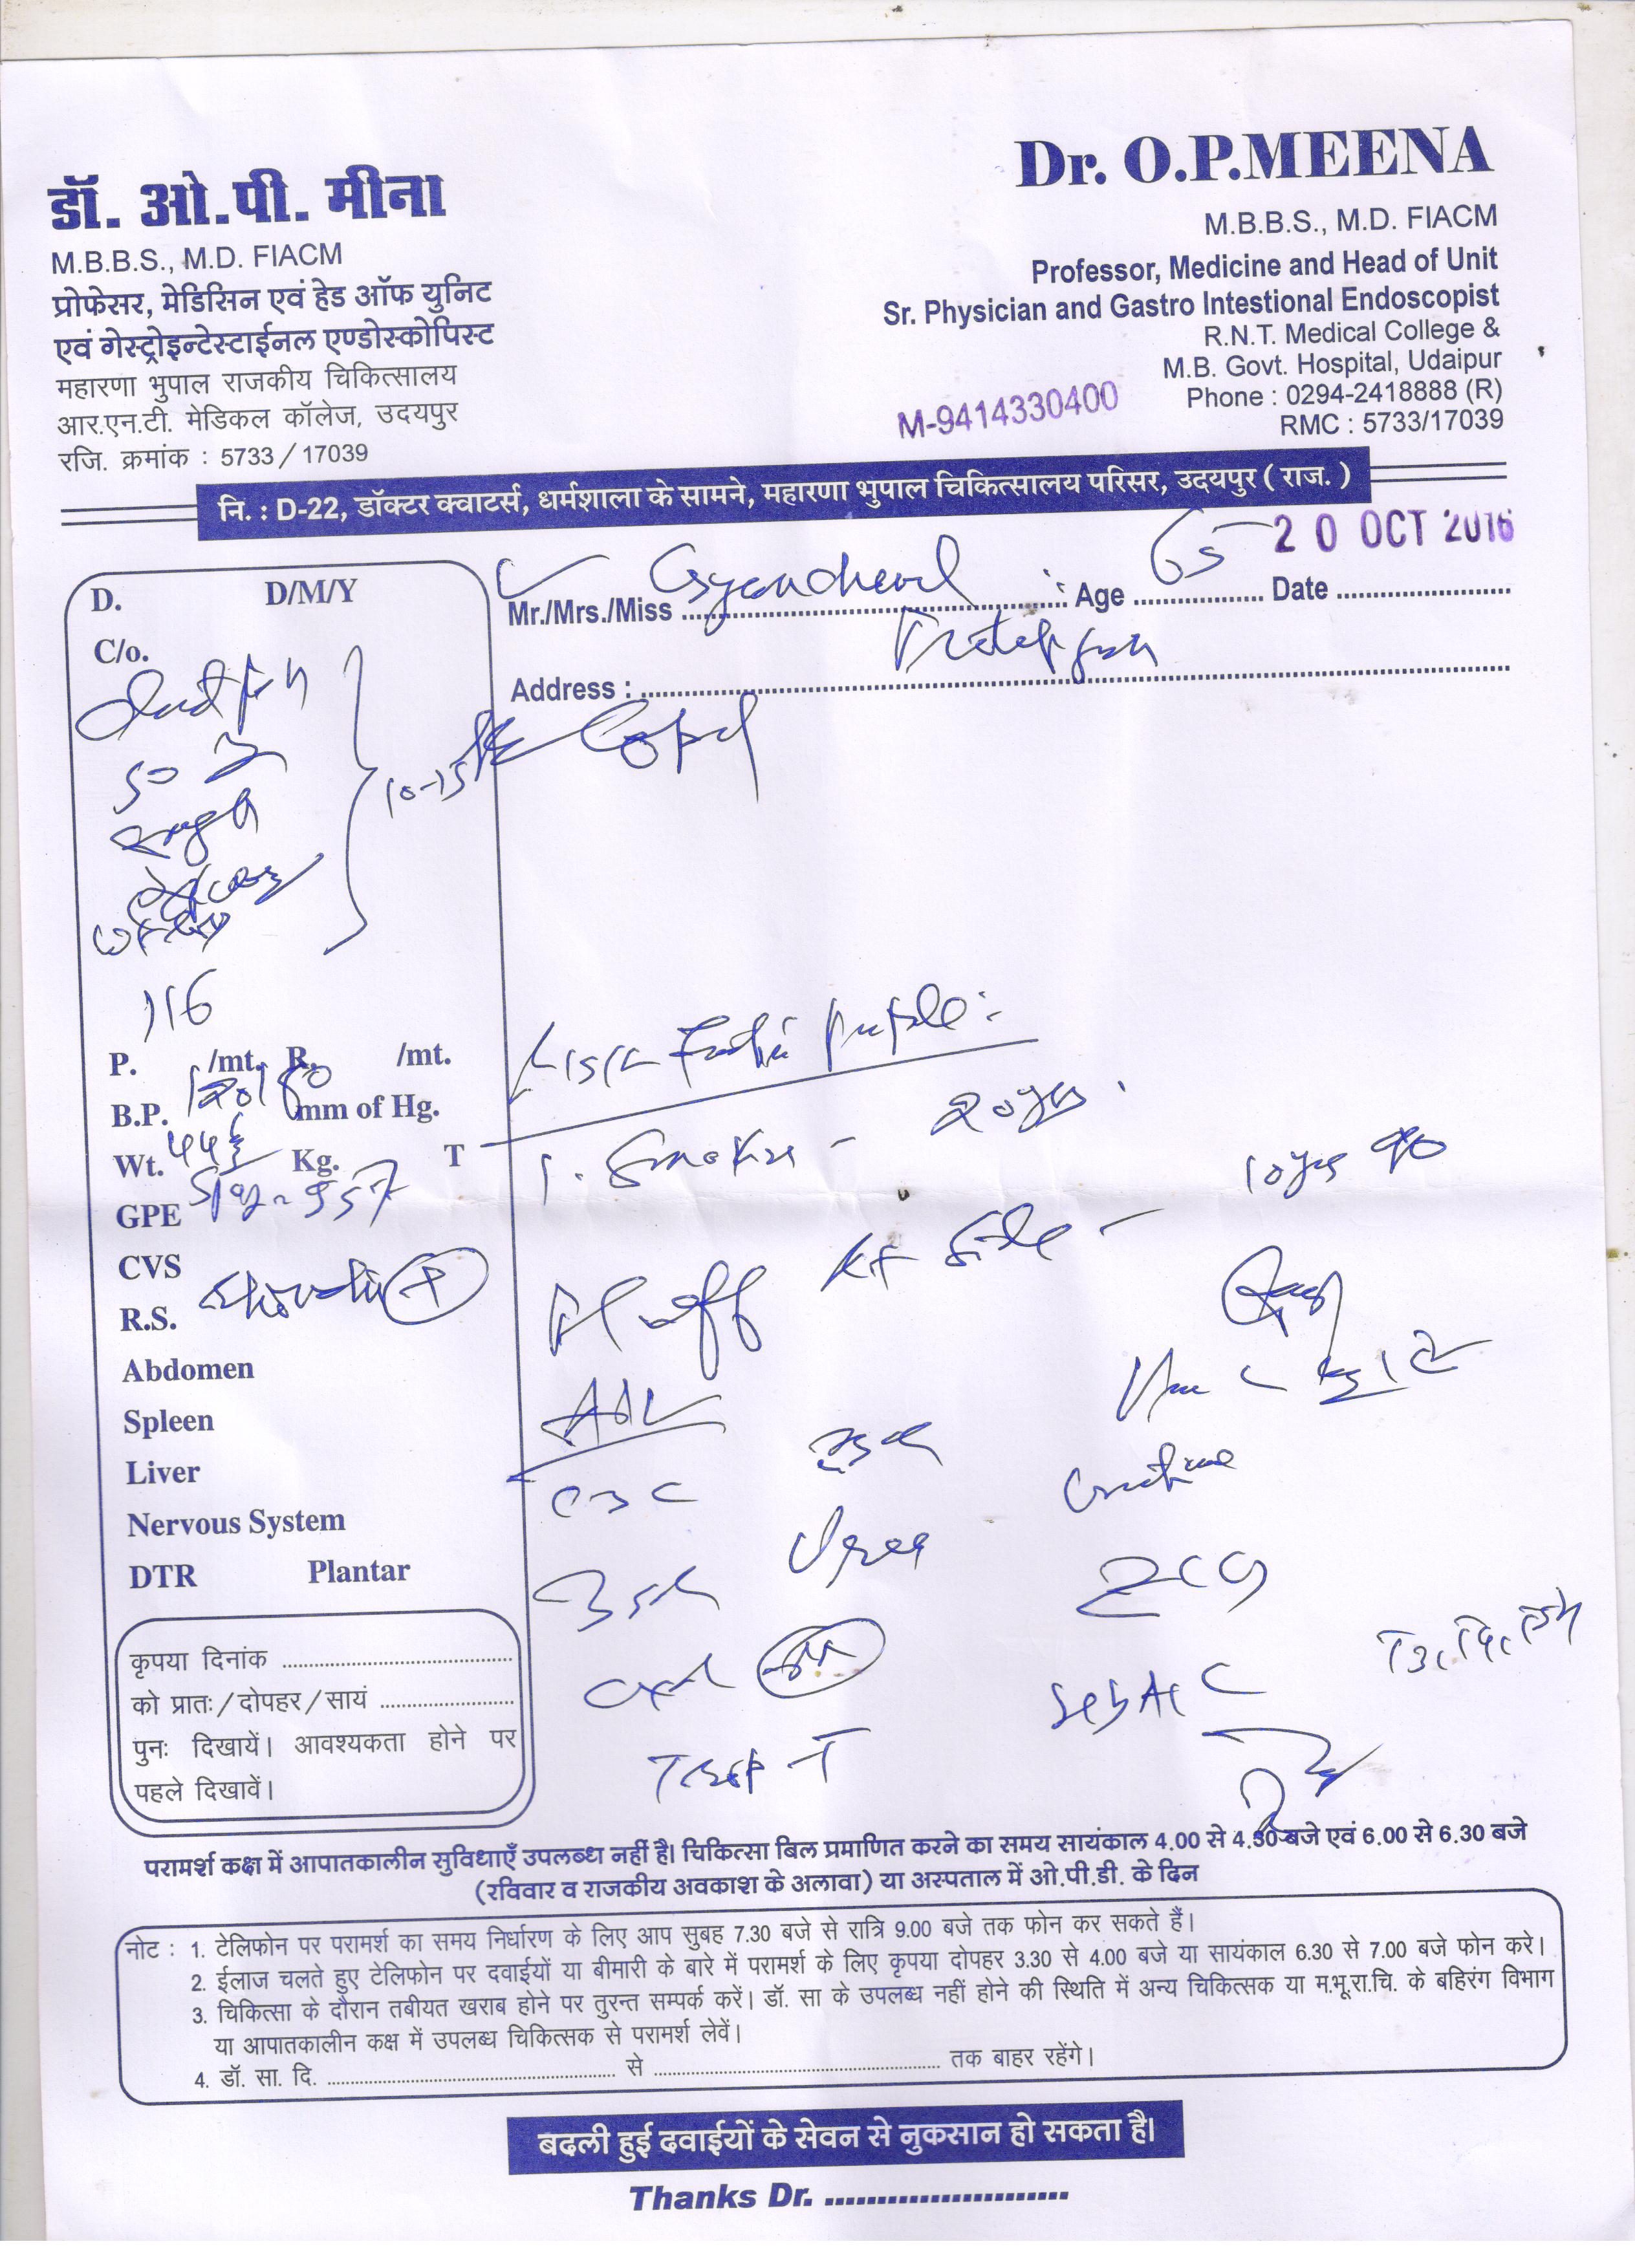 डॉ. ओ.पी. मीना
M.B.B.S., M.D. FIACM
प्रोफेसर, मेडिसिन एवं हेड ऑफ युनिट
एवं गेस्ट्रोइन्टेस्टाईनल एण्डोस्कोपिस्ट
महारणा भुपाल राजकीय चिकित्सालय
आर.एन.टी. मेडिकल कॉलेज, उदयपुर
रजि. क्रमांक : 5733/17039
Dr. O.P.MEENA
M.B.B.S., M.D. FIACM
Professor, Medicine and Head of Unit
Sr. Physician and Gastro Intestional Endoscopist
R.N.T. Medical College &
M.B. Govt. Hospital, Udaipur
Phone : 0294-2418888 (R)
RMC : 5733/17039
M-9414330400
नि. : D-22, डॉक्टर क्वाटर्स, धर्मशाला के सामने, महारणा भुपाल चिकित्सालय परिसर, उदयपुर ( राज. )
20 OCT 2016
Mr./Mrs./Miss Gyanchand Age 65 Date
Address :
D. D/M/Y
C/o.
10-15
Copd
116
P. /mt. R. /mt.
B.P. 120/80 mm of Hg.
Wt. 44 Kg. T
GPE
CVS
R.S.
Abdomen
Spleen
Liver
Nervous System
DTR Plantar
Risk Factor profile:
1. Smoker - 20 yrs.
10 yrs
Adv
CBC
Urea
ECG
T3, T4, TSH
Trop-T
कृपया दिनांक
को प्रातः/दोपहर/सायं
पुनः दिखायें। आवश्यकता होने पर
पहले दिखावें।
परामर्श कक्ष में आपातकालीन सुविधाएँ उपलब्ध नहीं है। चिकित्सा बिल प्रमाणित करने का समय सायंकाल 4.00 से 4.30 बजे एवं 6.00 से 6.30 बजे
(रविवार व राजकीय अवकाश के अलावा) या अस्पताल में ओ.पी.डी. के दिन
नोट : 1. टेलिफोन पर परामर्श का समय निर्धारण के लिए आप सुबह 7.30 बजे से रात्रि 9.00 बजे तक फोन कर सकते हैं।
2. ईलाज चलते हुए टेलिफोन पर दवाईयों या बीमारी के बारे में परामर्श के लिए कृपया दोपहर 3.30 से 4.00 बजे या सायंकाल 6.30 से 7.00 बजे फोन करे।
3. चिकित्सा के दौरान तबीयत खराब होने पर तुरन्त सम्पर्क करें। डॉ. सा के उपलब्ध नहीं होने की स्थिति में अन्य चिकित्सक या म.भू.रा.चि. के बहिरंग विभाग
या आपातकालीन कक्ष में उपलब्ध चिकित्सक से परामर्श लेवें।
4. डॉ. सा. दि. से तक बाहर रहेंगे।
बदली हुई दवाईयों के सेवन से नुकसान हो सकता है।
Thanks Dr.